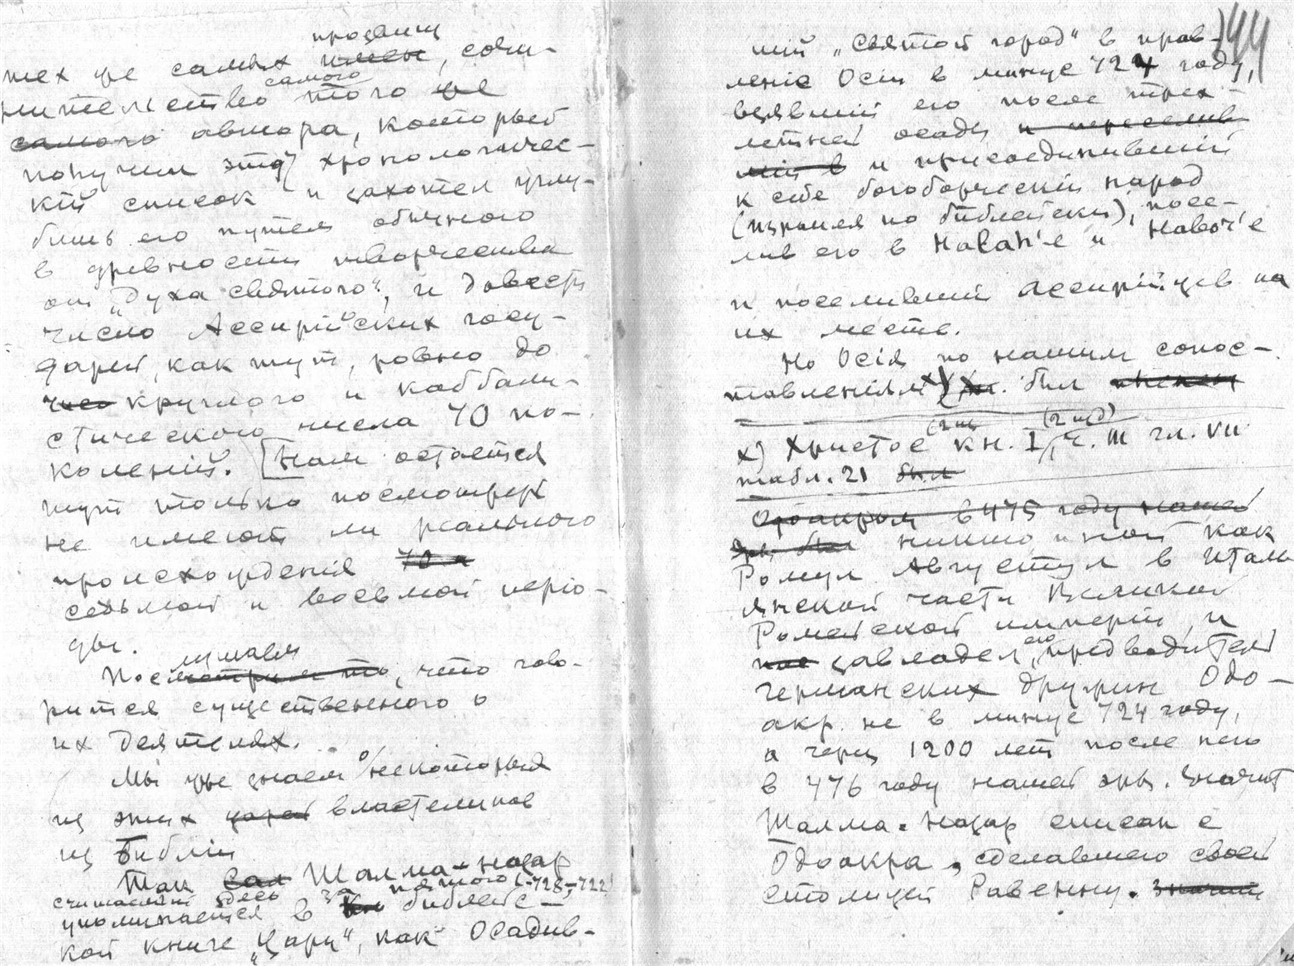 прозвищ
тех же самых имен, сочи-
нительство самого того же
самого автора, который
получил этот хронологичес-
кій список и захотел углу-
бить его путем обычного
в древности творчества
от „Духа святого“, и довести
число Ассирійских госу-
дарей, как тут, ровно до
чис круглого и каббали-
стического числа 70 по-
коленій. [Нам остается
тут только посмотреть
не имеют ли реального
происхожденія 70и
седьмой и восьмой перio-
ды.
лушаем
Посмотрим то, что гово-
рится существенного о
их деятелях.
Мы уже знаем о некоторых
из этих царей властелинов
из Библіи
Так Сал Шалма-нацар
считаемый здесь пятого (-728-722
упоминается в библейс-
кой книге „Цари“, как осадив-
144
шій „Святой город“ в прав-
леніе Осіи в минус 724 году,
взявшій его после трех-
летней осады и переселив
шій в и присоединившій
к себе богоборческій народ
(Израиля по библейски), посе-
лив его в Halah'е и Habor'е
и поселившій Ассирійцев на
их место.
Но Осія по нашим сопос-
тавленіям х) был
х) Христос (2 изд) кн. I, ч. III гл. VII
табл. 21 был
Одоакром в 475 году нашей
эры был никто иной как
Ромул Августул в Итали
янской части Великой
Ромейской имперіи и
завладел его предводител
германских дружин Одо-
акр не в минус 724 году,
а через 1200 лет после него
в 476 году нашей эры. Значит
Шалма-нацар списан с
Одоакра, сделавшего своей
столицей Равенну. Значит